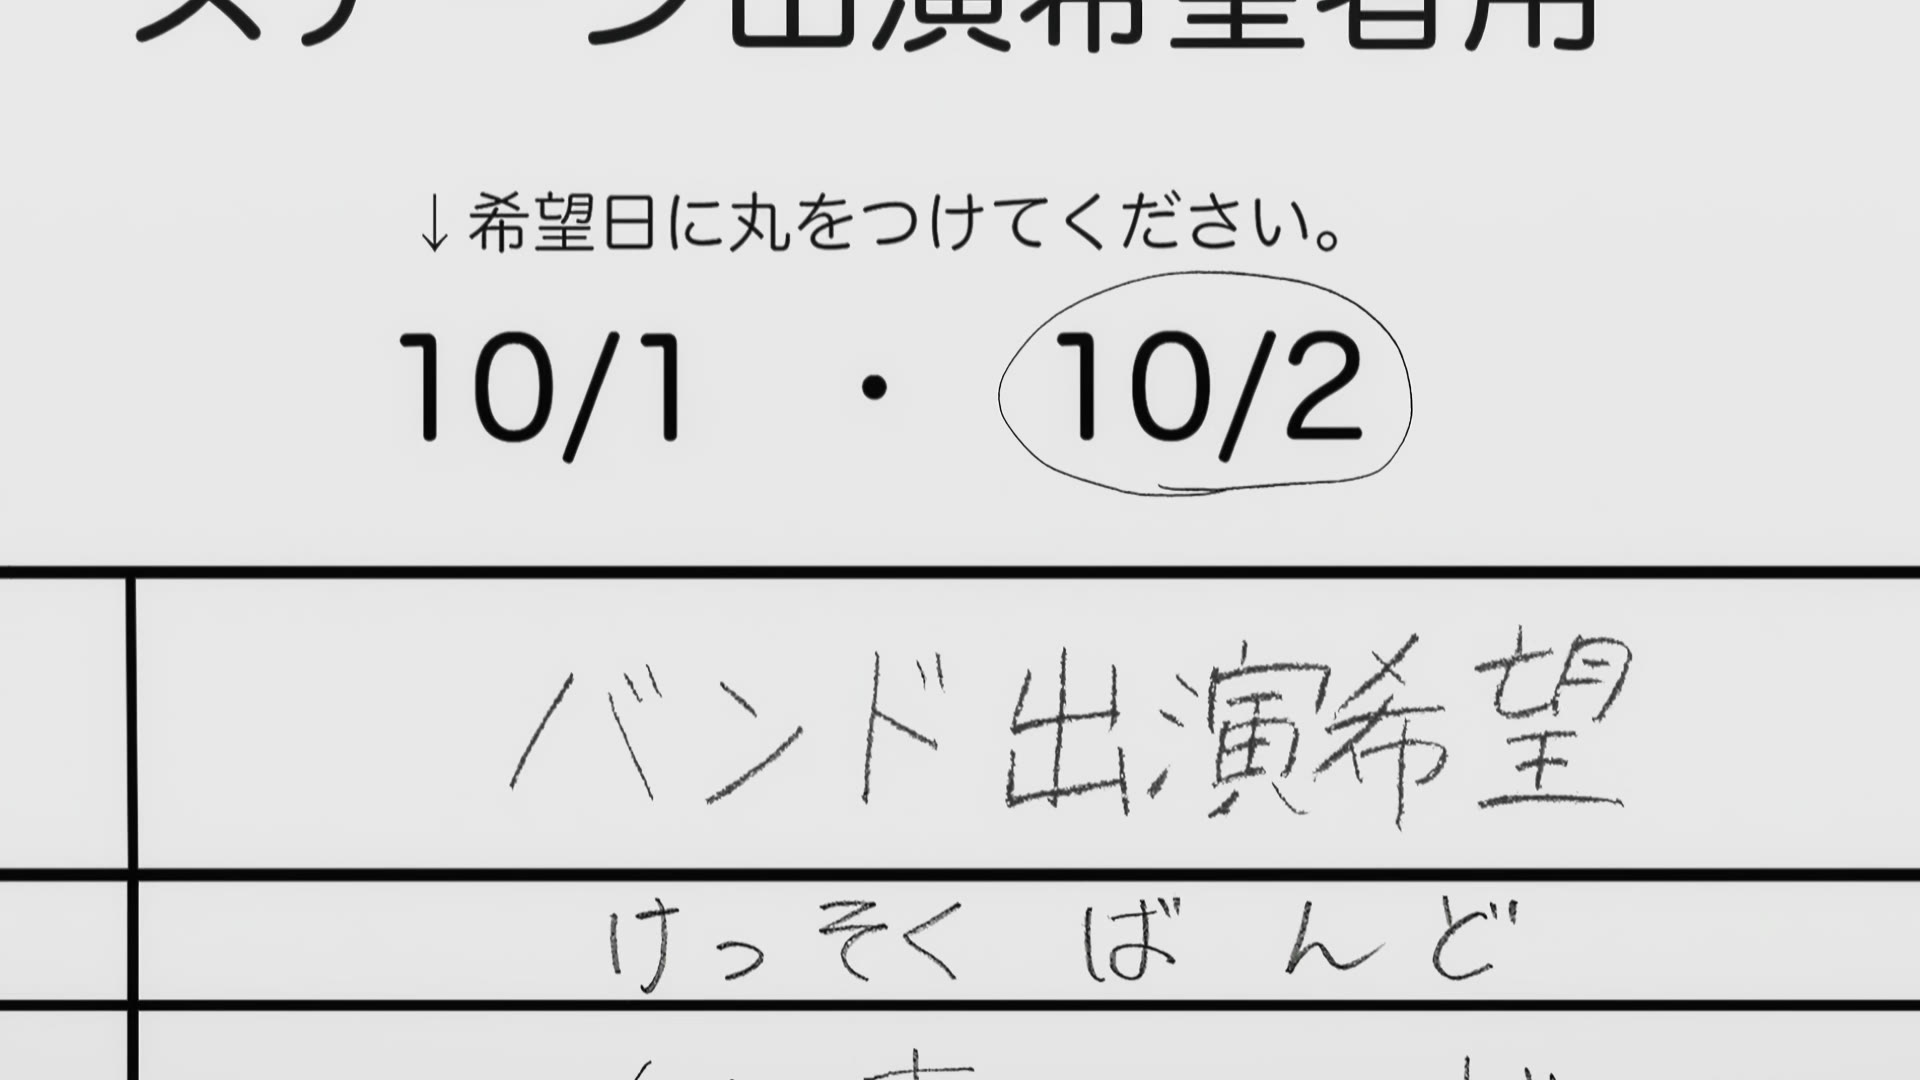 ステージ出演希望者用
↓希望日に丸をつけてください。
10/1 ・ 10/2
バンド出演希望
けっそく ばんど